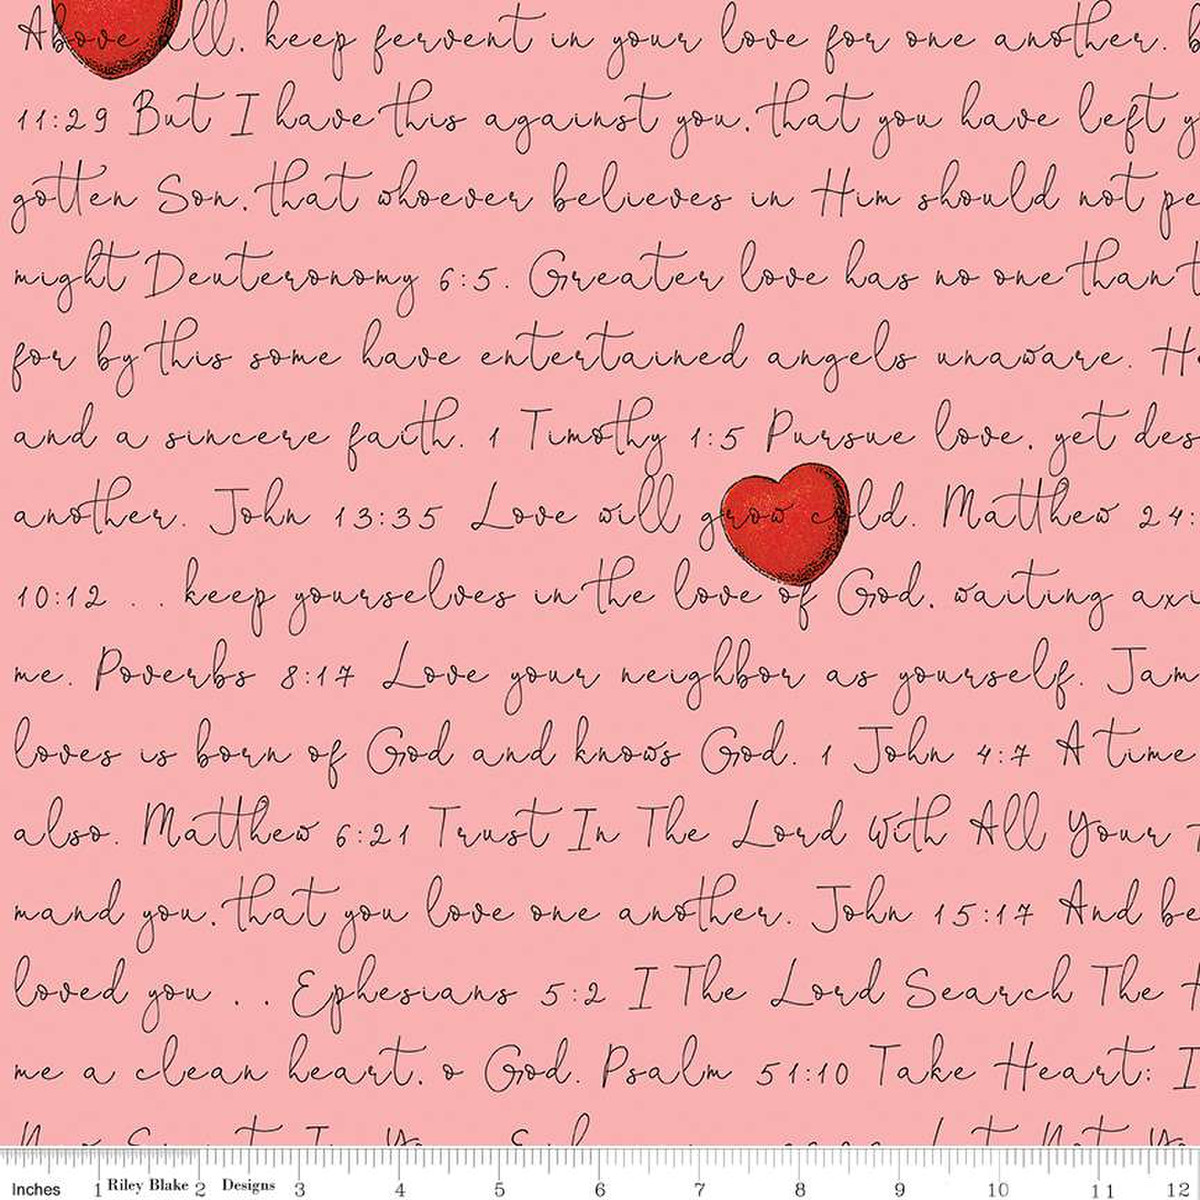 Above all, keep fervent in your love for one another. b
11:29 But I have this against you, that you have left y
gotten Son, that whoever believes in Him should not pe
might Deuteronomy 6:5. Greater love has no one than t
for by this some have entertained angels unaware. H
and a sincere faith. 1 Timothy 1:5 Pursue love, yet des
another. John 13:35 Love will grow cold. Matthew 24:
10:12 . . keep yourselves in the love of God, waiting axi
me. Poverbs 8:17 Love your neighbor as yourself. Jam
loves is born of God and knows God. 1 John 4:7 A time
also. Matthew 6:21 Trust In The Lord With All Your
mand you, that you love one another. John 15:17 And be
loved you . . Ephesians 5:2 I The Lord Search The
me a clean heart, o God. Psalm 51:10 Take Heart: I
Inches 1 Riley Blake 2 Designs 3 4 5 6 7 8 9 10 11 12